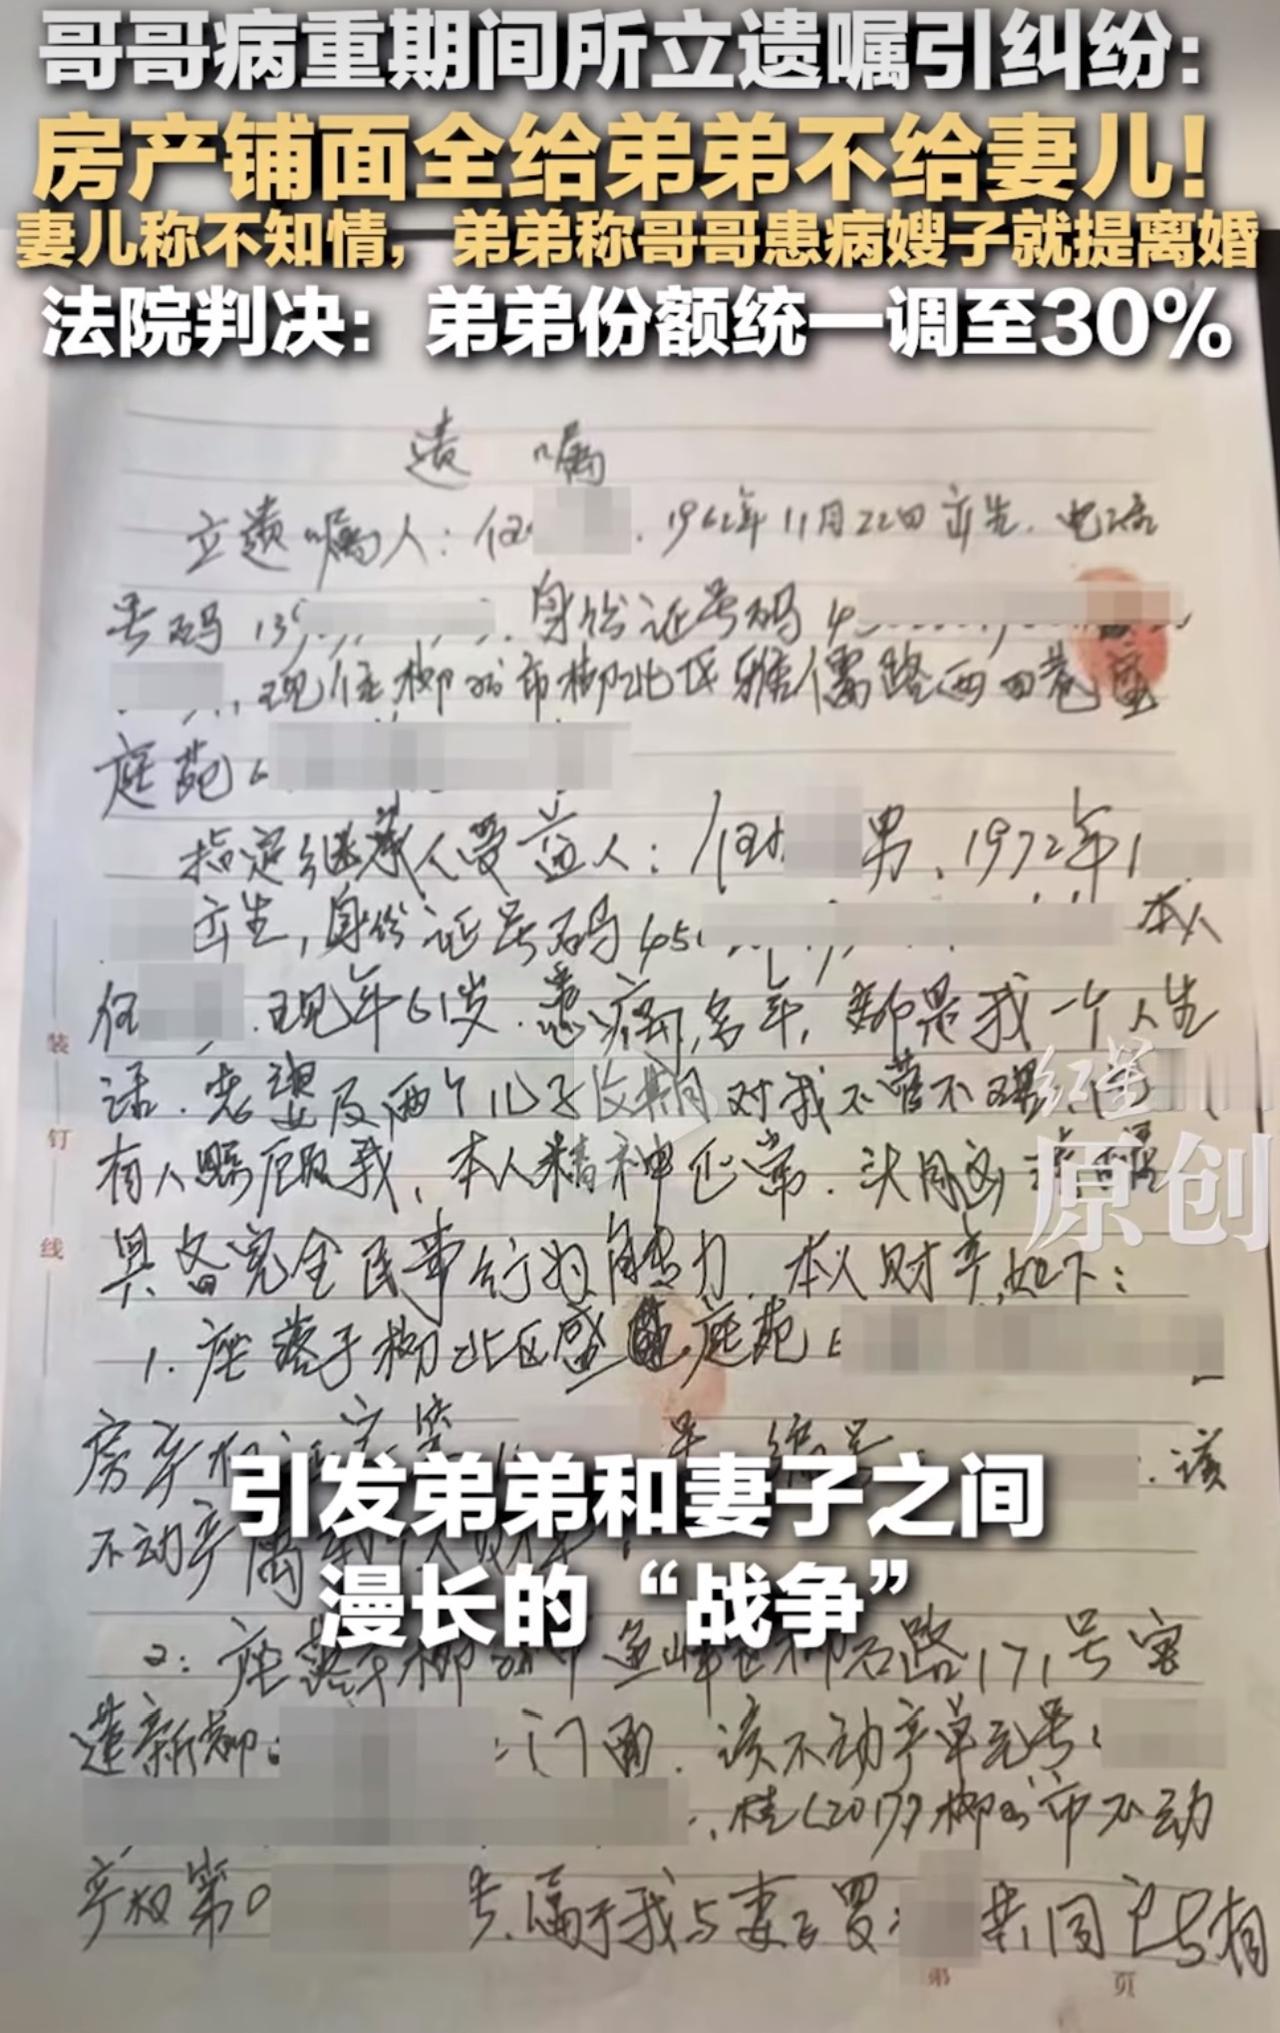 哥哥病重期间所立遗嘱引纠纷：
房产铺面全给弟弟不给妻儿！
妻儿称不知情，弟弟称哥哥患病嫂子就提离婚
法院判决：弟弟份额统一调至30%
遗嘱
立遗嘱人：任 ，1962年11月22日出生．电话
号码139 ．身份证号码4
，现住柳州市柳北区雅儒路西四巷盛
庭苑
指定继承人受益人：任 男、1972年1
出生，身份证号码45 本人
任 ．现年61岁．患病多年，都是我一个人生
话．老婆及两个儿子长期对我不管不理
红星
有人照顾我，本人精神正常．头闹
原创
具备完全民事行为能力．本人财产如下：
装
订
线
1．座落于柳北区盛 庭苑
房产 号 编号 ．该
引发弟弟和妻子之间
不动产属
漫长的“战争”
2：座落于柳州市鱼峰区柳石路171号
莲新都 门面．该不动产单元号：
，桂（2017）柳州市不动
产权第0 号．属于我与妻子罗 共同
第 页